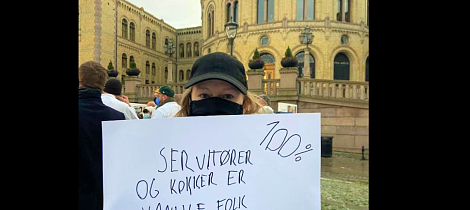 100%
SERVITØRER
OG KOKKER ER
VANLIGE FOLK